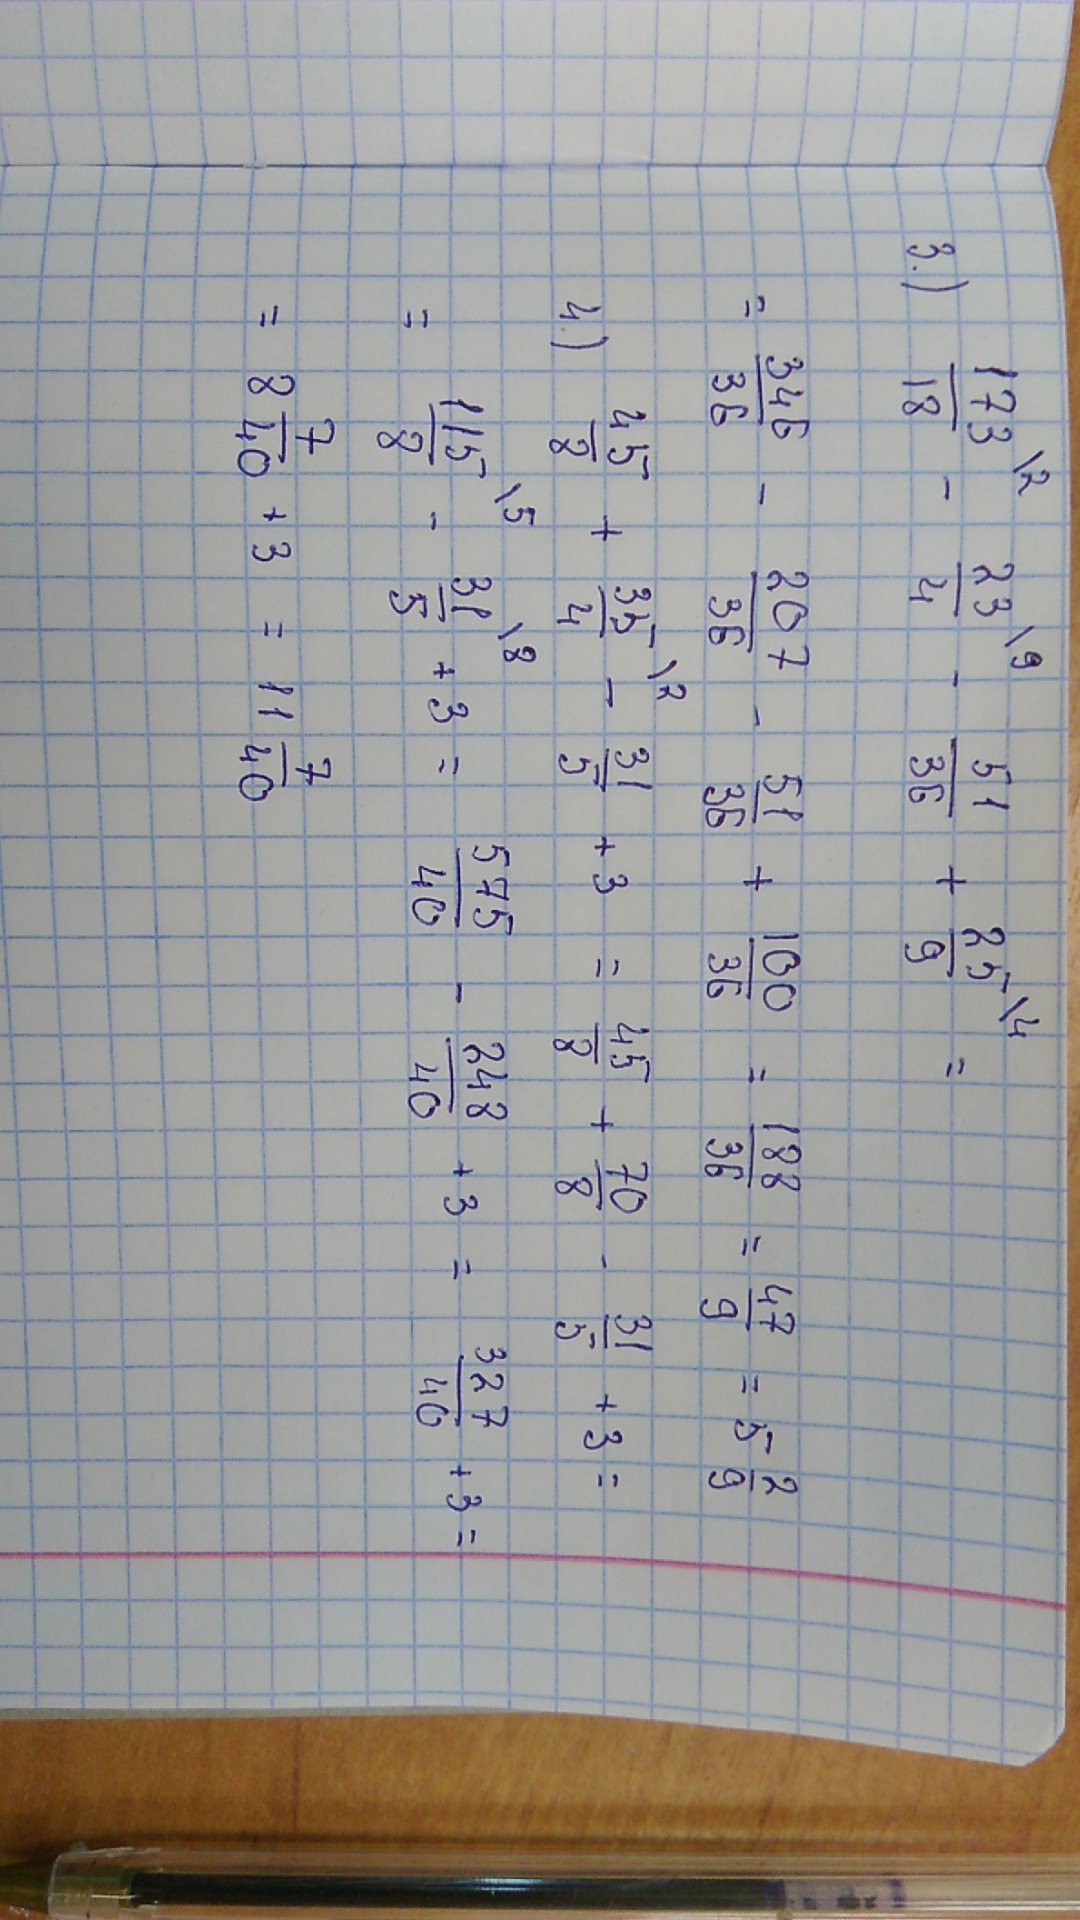 3.) 173/18 \2 - 23/4 \9 - 51/36 + 25/9 \4 =
= 346/36 - 207/36 - 51/36 + 100/36 = 188/36 = 47/9 = 5 2/9
4.) 45/8 + 35/4 \2 - 31/5 + 3 = 45/8 + 70/8 - 31/5 + 3 =
= 115/8 \5 - 31/5 \8 + 3 = 575/40 - 248/40 + 3 = 327/40 + 3 =
= 8 7/40 + 3 = 11 7/40